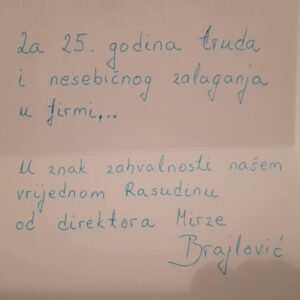 Za 25. godina truda
i nesebičnog zalaganja
u firmi,..
U znak zahvalnosti našem
vrijednom Rasudinu
od direktora Mirze
Brajlović